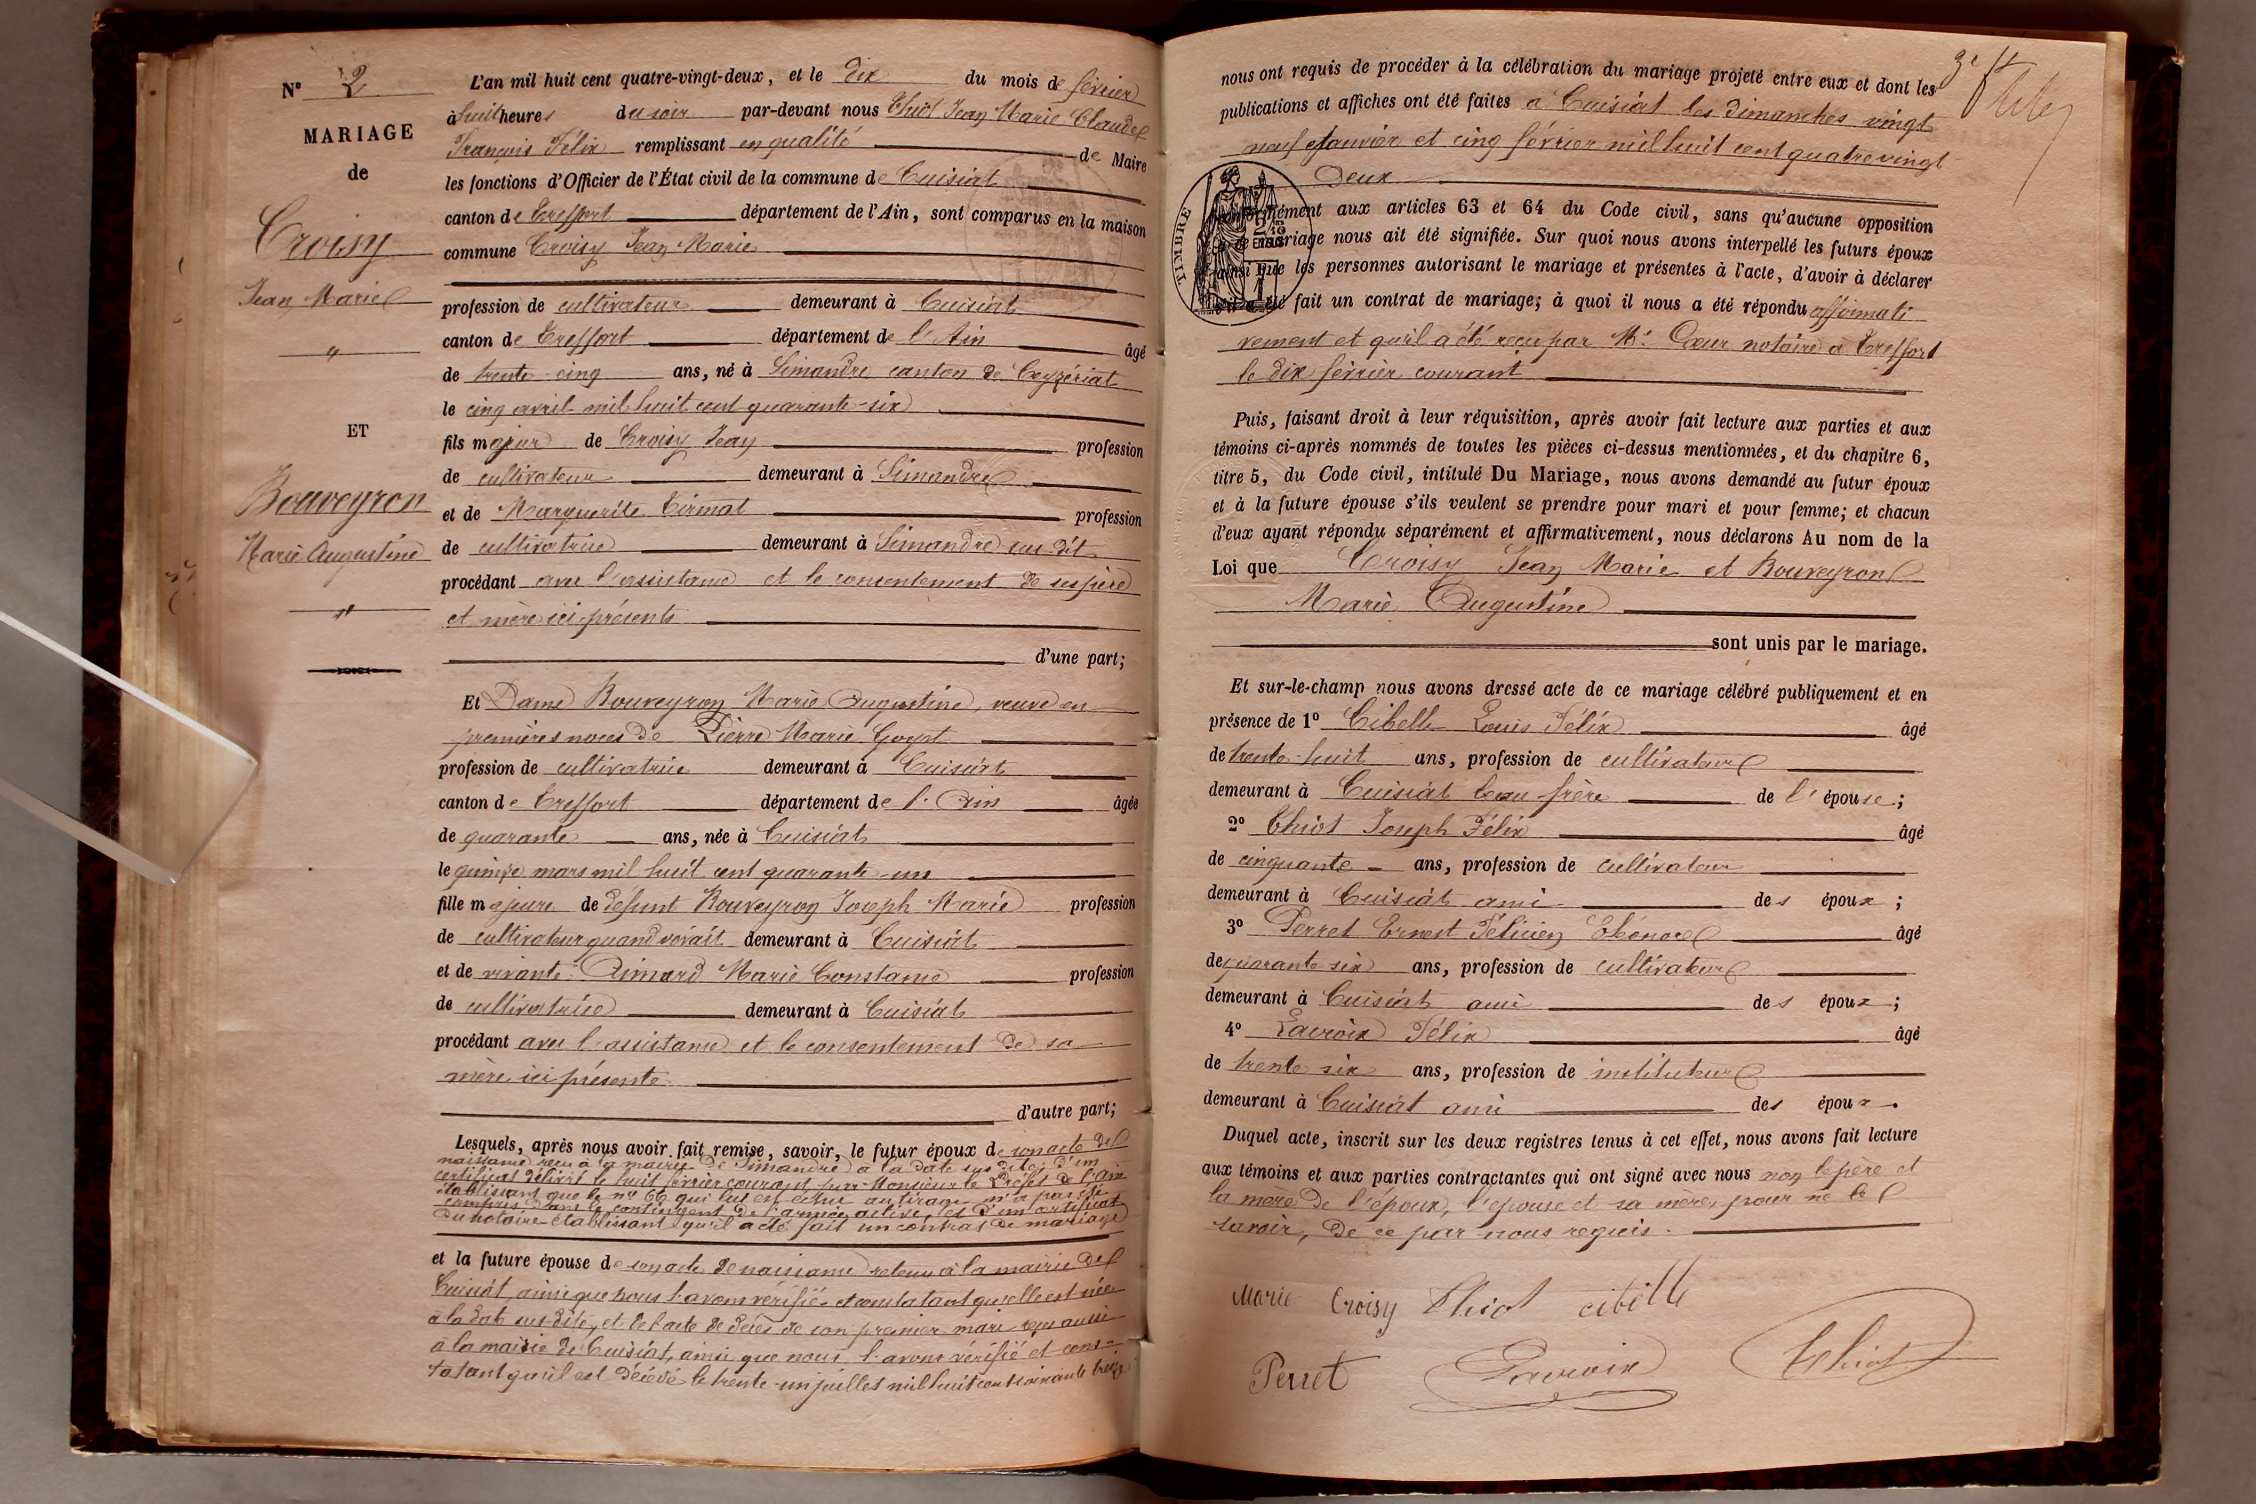 Nº 2
MARIAGE
de
Croisy
Jean Marie
"
ET
Bouveyron
Marie Augustine
"
L'an mil huit cent quatre-vingt-deux, et le dix du mois de février
à huit heures du soir par-devant nous Thiot Jean Marie Claude
François Félix remplissant en qualité de Maire
les fonctions d'Officier de l'État civil de la commune de Cuisiat
canton de Treffort département de l'Ain, sont comparus en la maison
commune Croisy Jean Marie
profession de cultivateur demeurant à Cuisiat
canton de Treffort département de l'Ain âgé
de trente-cinq ans, né à Simandre canton de Ceyzériat
le cinq avril mil huit cent quarante-six
fils majeur de Croisy Jean profession
de cultivateur demeurant à Simandre
et de Marguerite Tirmat profession
de cultivatrice demeurant à Simandre sus dit
procédant avec l'assistance et le consentement de ses père
et mère ici présents
d'une part;
Et Dame Bouveyron Marie Augustine, veuve en
premières noces de Pierre Marie Goyet
profession de cultivatrice demeurant à Cuisiat
canton de Treffort département de l'Ain âgée
de quarante ans, née à Cuisiat
le quinze mars mil huit cent quarante-un
fille majeure de défunt Bouveyron Joseph Marie profession
de cultivateur quand vivait demeurant à Cuisiat
et de vivante Aimard Marie Constance profession
de cultivatrice demeurant à Cuisiat
procédant avec l'assistance et le consentement de sa
mère ici présente
d'autre part;
Lesquels, après nous avoir fait remise, savoir, le futur époux de son acte de
naissance reçu à la mairie de Simandre à la date sus dite, d'un
certificat délivré le huit février courant par Monsieur le Préfet de l'Ain
établissant que le nº 66 qui lui est échu au tirage n'a pas été
compris dans le contingent de l'armée active, et d'un certificat
du notaire établissant qu'il a été fait un contrat de mariage
et la future épouse de son acte de naissance retenu à la mairie de
Cuisiat, ainsi que nous l'avons vérifié et constatant qu'elle est née
à la date sus dite, et de l'acte de décès de son premier mari reçu aussi
à la mairie de Cuisiat, ainsi que nous l'avons vérifié et cons-
tatant qu'il est décédé le trente-un juillet mil huit cent soixante treize
nous ont requis de procéder à la célébration du mariage projeté entre eux et dont les
publications et affiches ont été faites à Cuisiat les dimanches vingt
neuf Janvier et cinq février mil huit cent quatre vingt
deux
TIMBRE
conformément aux articles 63 et 64 du Code civil, sans qu'aucune opposition
à ce mariage nous ait été signifiée. Sur quoi nous avons interpellé les futurs époux
ainsi que les personnes autorisant le mariage et présentes à l'acte, d'avoir à déclarer
s'il a été fait un contrat de mariage; à quoi il nous a été répondu affirmati
vement et qu'il a été reçu par Me Cœur notaire à Treffort
le dix février courant
Puis, faisant droit à leur réquisition, après avoir fait lecture aux parties et aux
témoins ci-après nommés de toutes les pièces ci-dessus mentionnées, et du chapitre 6,
titre 5, du Code civil, intitulé Du Mariage, nous avons demandé au futur époux
et à la future épouse s'ils veulent se prendre pour mari et pour femme; et chacun
d'eux ayant répondu séparément et affirmativement, nous déclarons Au nom de la
Loi que Croisy Jean Marie et Bouveyron
Marie Augustine
sont unis par le mariage.
Et sur-le-champ nous avons dressé acte de ce mariage célébré publiquement et en
présence de 1º Cibelle Louis Félix âgé
de trente-huit ans, profession de cultivateur
demeurant à Cuisiat beau frère de l'épouse;
2º Thiot Joseph Félix âgé
de cinquante ans, profession de cultivateur
demeurant à Cuisiat ami des époux;
3º Perret Ernest Félicien âgé
de quarante six ans, profession de cultivateur
demeurant à Cuisiat ami des époux;
4º Lacroix Félix âgé
de trente six ans, profession de instituteur
demeurant à Cuisiat ami des époux.
Duquel acte, inscrit sur les deux registres tenus à cet effet, nous avons fait lecture
aux témoins et aux parties contractantes qui ont signé avec nous non le père et
la mère de l'époux, l'épouse et sa mère, pour ne le
savoir, de ce par nous requis.
Marie Croisy Thiot cibelle
Perret Lacroix Thiot